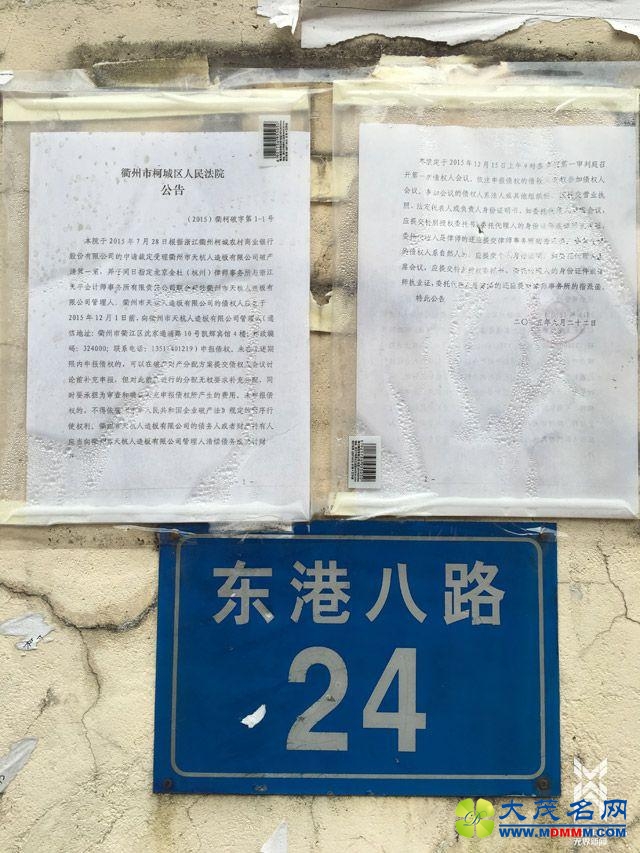 衢州市柯城区人民法院
公告
(2015)衢柯破字第1-1号
本院于2015年7月28日根据浙江衢州柯城农村商业银行
股份有限公司的申请裁定受理衢州市天杭人造板有限公司破产
清算一案,并于同日指定北京金社(杭州)律师事务所与浙江
天平会计师事务所有限责任公司联合担任衢州市天杭人造板有
限公司管理人。衢州市天杭人造板有限公司的债权人应于
2015年12月1日前,向衢州市天杭人造板有限公司管理人(通
信地址:衢州市衢江区沈家通浦路10号凯辉宾馆4楼;邮政编
码:324000;联系电话:)申报债权。未在上述期
限内申报债权的,可以在破产财产分配方案提交债权人会议讨
论前补充申报,但对此前已进行的分配无权要求补充分配,同
时要承担为审查和确认补充申报债权所产生的费用。未申报债
权的,不得依照《中华人民共和国企业破产法》规定的程序行
使权利。衢州市天杭人造板有限公司的债务人或者财产持有人
应当向衢州市天杭人造板有限公司管理人清偿债务或交付财
产。
1
本院定于2015年12月15日上午9时在本院第一审判庭召
开第一次债权人会议。依法申报债权的债权人有权参加债权人
会议。参加会议的债权人系法人或其他组织的,应提交营业执
照、法定代表人或负责人身份证明书,如委托代理人出席会议,
应提交特别授权委托书、委托代理人的身份证件或律师执业证,
委托代理人是律师的还应提交律师事务所的指派函。参加会议
的债权人系自然人的,应提交个人身份证明。如委托代理人出
席会议,应提交特别授权委托书、委托代理人的身份证件或律
师执业证,委托代理人是律师的还应提交律师事务所的指派函。
特此公告
二〇一五年九月二十二日
2
东港八路
24
元界新闻
大茂名网
WWW.MDMMM.COM